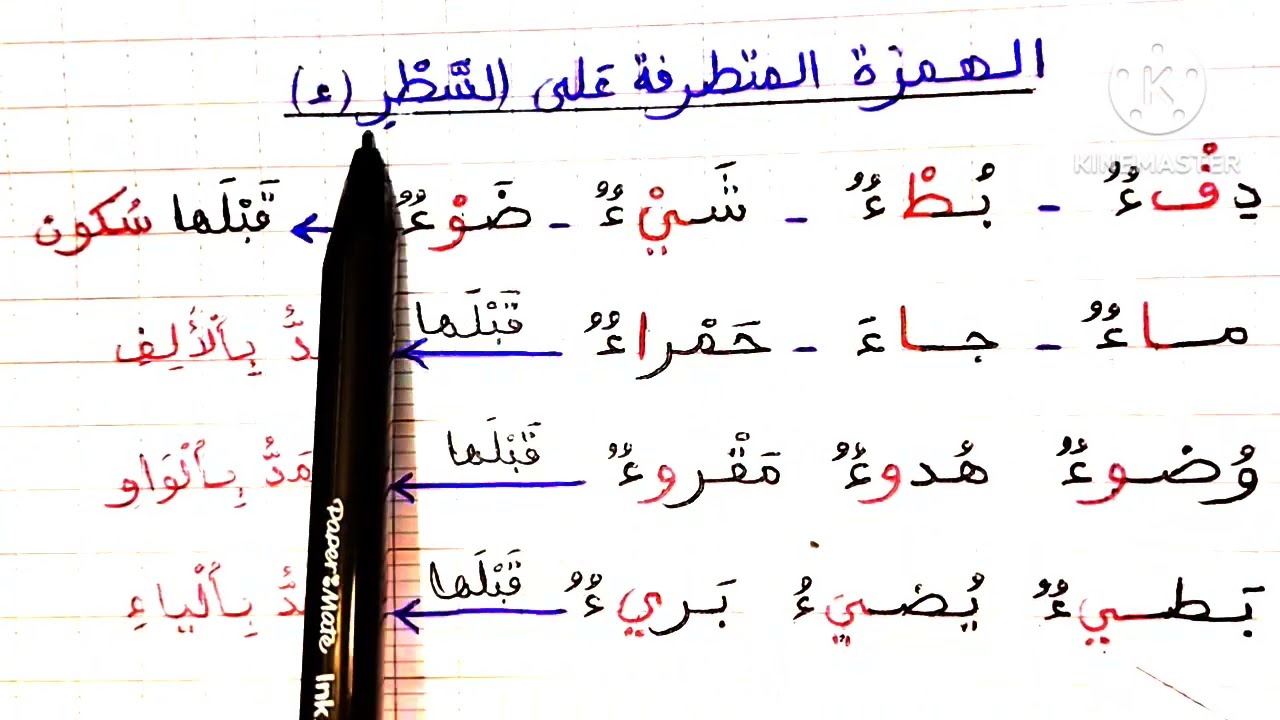 الهمزة المتطرفة عَلى السَّطْرِ (ء)
KINEMASTER
دِفْءٌ - بُطْءٌ - شَيْءٌ - ضَوْءٌ ← قَبْلَها سُكون
ماءٌ - جاءَ - حَمْراءٌ ← قَبْلَها دٌّ بِاْلأَلِفِ
وُضوءٌ هُدوءٌ مَقْروءٌ ← قَبْلَها مَدٌّ بِاْلْوَاوِ
بَطيءٌ يُضيءُ بَريءٌ ← قَبْلَها دٌّ بِاْلْياءِ
Paper:Mate Ink